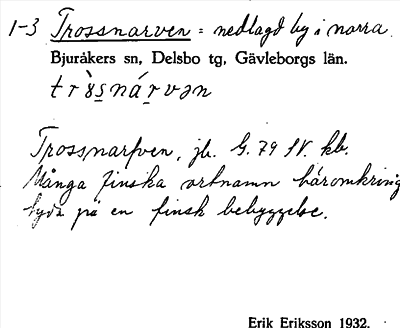 1-3 Trossnarven = nedlagd by i norra
Bjuråkers sn, Delsbo tg, Gävleborgs län.
Trossnarfven, jb. G. 79 SV. kb.
Många finska ortnamn häromkring
tyda på en finsk bebyggelse.
Erik Eriksson 1932.